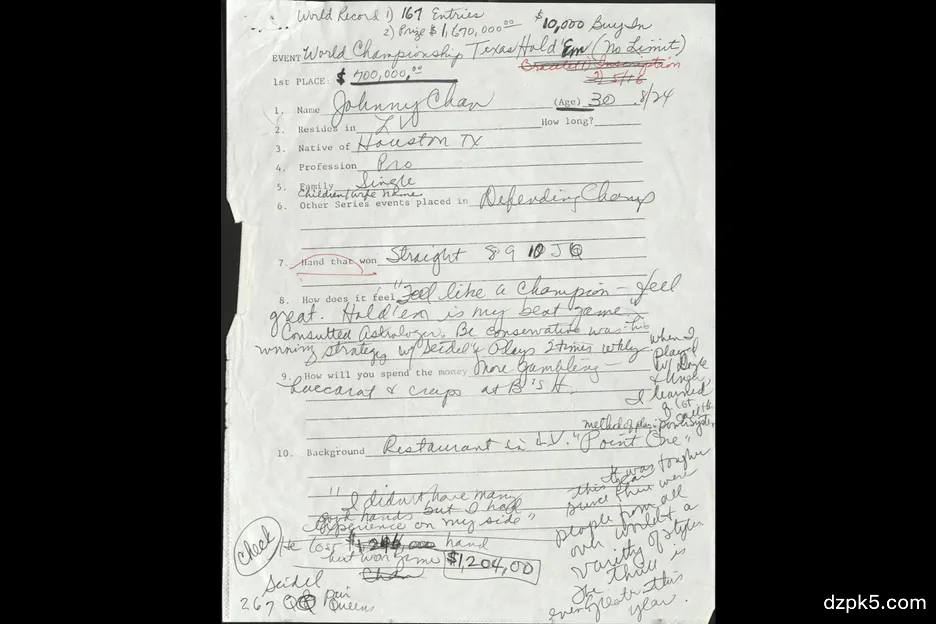 World Record 1) 167 Entries
2) Prize $1,670,000.00 $10,000 Buy In
EVENT World Championship Texas Hold'Em (No Limit)
Bracelet) Inscription
2) 5/16
1st PLACE: $700,000.00
1. Name Johnny Chan (Age) 30 8/24
2. Resides in LV How long?
3. Native of Houston TX
4. Profession Pro
5. Family Single
Children/wife Name
6. Other Series events placed in Defending Champ
7. Hand that won Straight 8 9 10 J Q
8. How does it feel "Feel like a Champion - feel
great. Hold'em is my best game."
Consulted Astrologer. Be conservative was his
winning strategy w/ Seidel & Plays 2 times wkly
9. How will you spend the money More Gambling -
baccarat & craps at B's H.
when I
played
w/ Doyle
I learned
method of play
10. Background Restaurant in L.V. "Point One"
"I didn't have many
good hands but I had
experience on my side"
It was tougher
this year
since there were
people from all
over world & a
variety of styles.
The thrill is
even greater this
year.
check
He lost hand
but won game
$1,204,00
Chan
Seidel
2 6 7 Q Q Pair
Queens
dzpk5.com